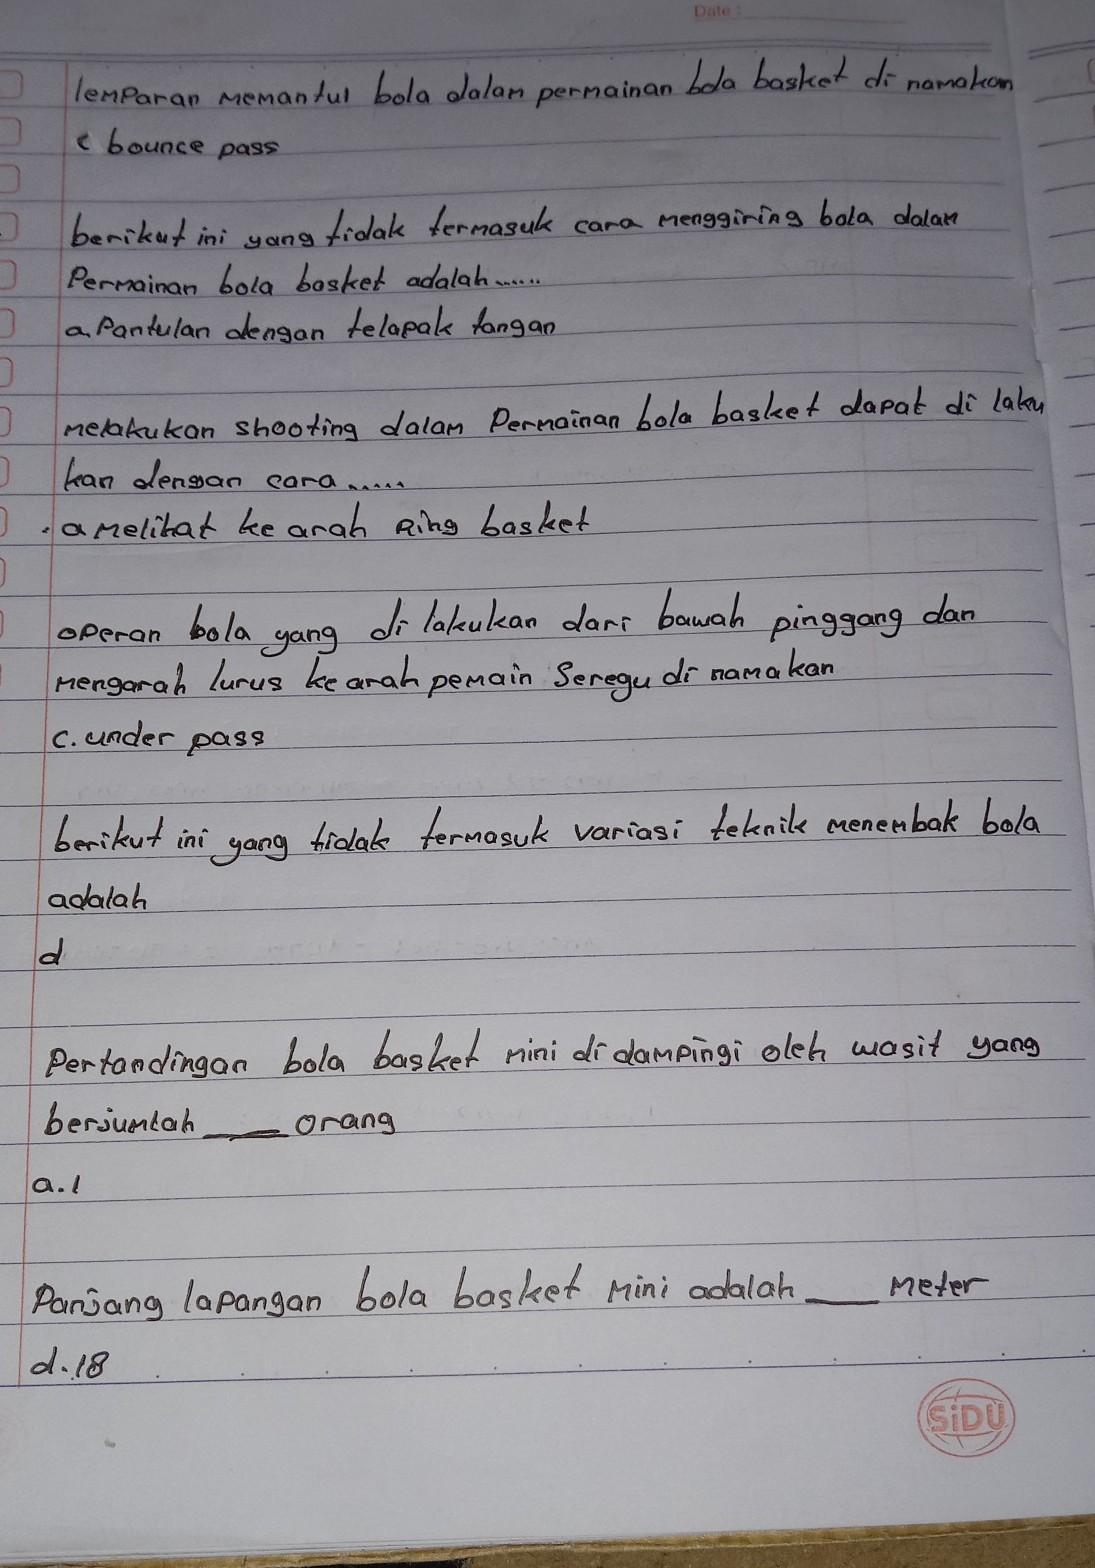 Date:
lemparan memantul bola dalam permainan bola basket di namakan
c bounce pass
berikut ini yang tidak termasuk cara menggiring bola dalam
Permainan bola basket adalah......
a. Pantulan dengan telapak tangan
melakukan shooting dalam Permainan bola basket dapat di laku
kan dengan cara.....
a melihat ke arah Ring basket
operan bola yang di lakukan dari bawah pinggang dan
mengarah lurus ke arah pemain Seregu di namakan
c. under pass
berikut ini yang tidak termasuk variasi teknik menembak bola
adalah
d
Pertandingan bola basket mini di dampingi oleh wasit yang
berjumlah ___ orang
a. 1
Panjang lapangan bola basket Mini adalah ___ Meter
d. 18
SiDU